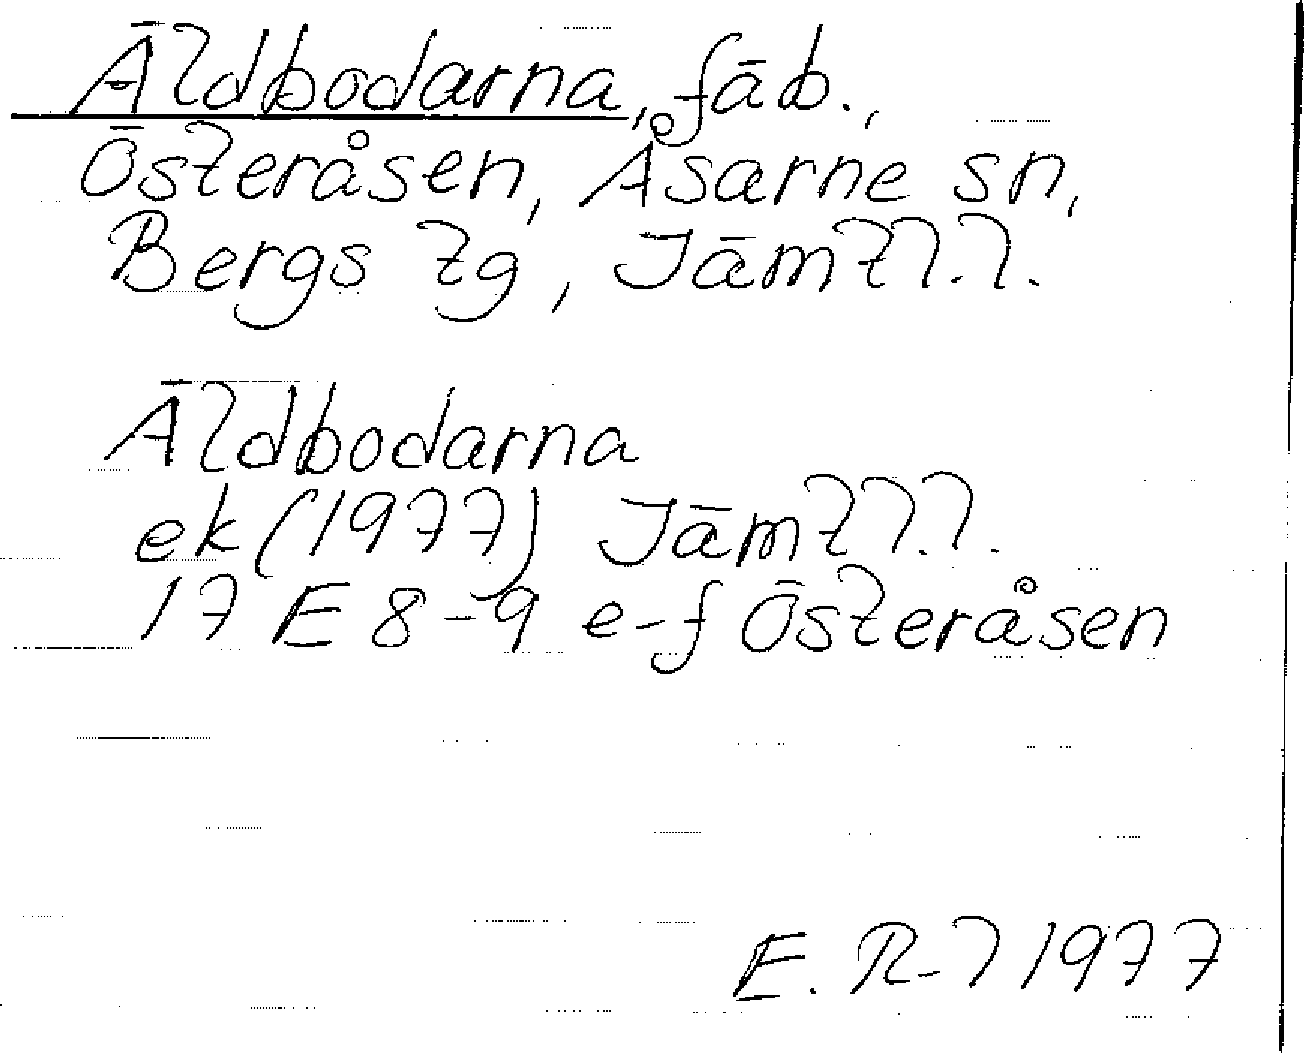 Äldbodarna, fäb.,
Österåsen, Åsarne sn,
Bergs tg, Jämtl.l.
Äldbodarna
ek (1977) Jämtl.l.
17 E 8-9 e-f Österåsen
E. R-l 1977